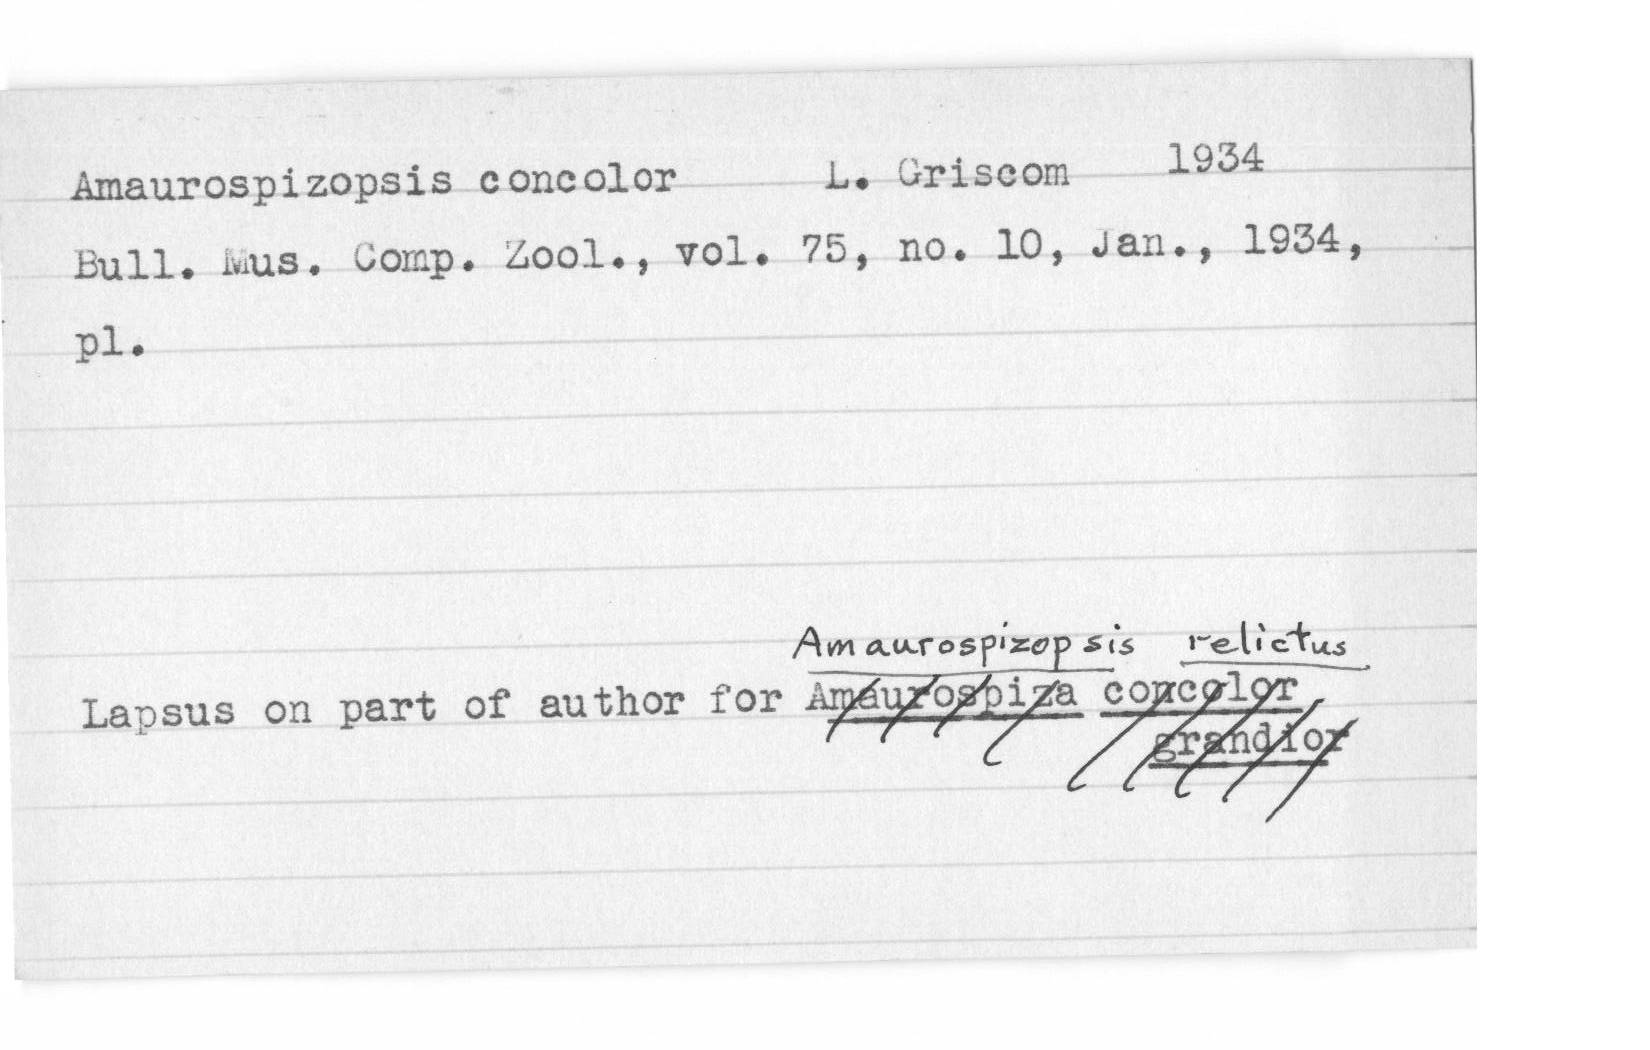 Amaurospizopsis concolor L. Griscom 1934
Bull. Mus. Comp. Zool., vol. 75, no. 10, Jan., 1934,
pl.
Amaurospizopsis relictus
Lapsus on part of author for Amaurospiza concolor
grandior